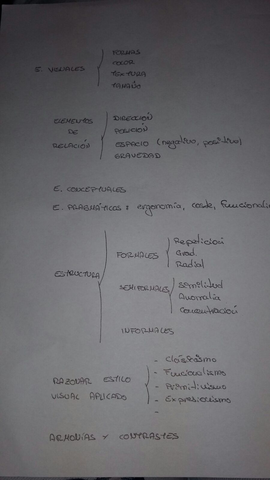 FORMAS
COLOR
E. VISUALES
TEXTURA
TAMAÑO
DIRECCIÓN
ELEMENTOS
POSICIÓN
DE
ESPACIO (negativo, positivo)
RELACIÓN
GRAVEDAD
E. CONCEPTUALES
E. PRAGMÁTICOS: ergonomía, coste, funcionali
Repetición
FORMALES
Grad.
Radial
ESTRUCTURA
SEMIFORMALES
Similitud
Anomalía
Concentración
INFORMALES
- Clasicismo
RAZONAR ESTILO
- Funcionalismo
VISUAL APLICADO
- Primitivismo
- Expresionismo
-
ARMONÍAS Y CONTRASTES